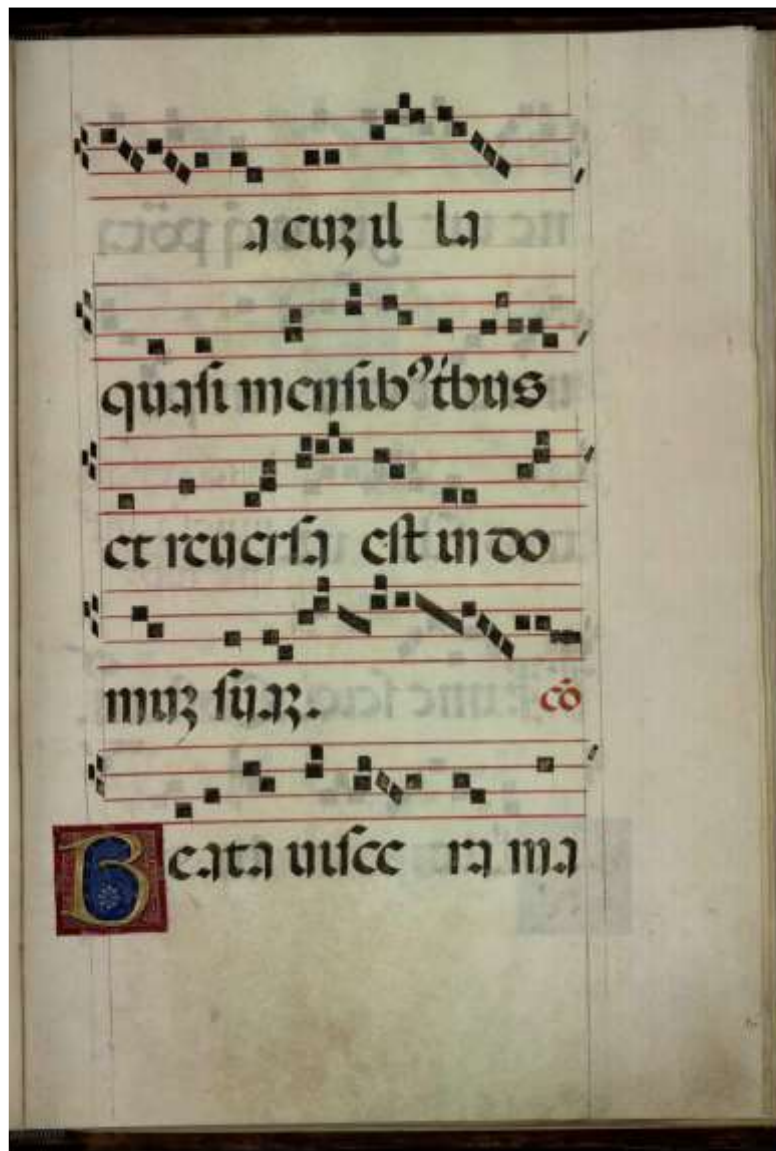 a cuz il la
quasi mensibꝰ tͥbus
et reuersa est in do
muz suaz.
cō
Beata uisce ra ma